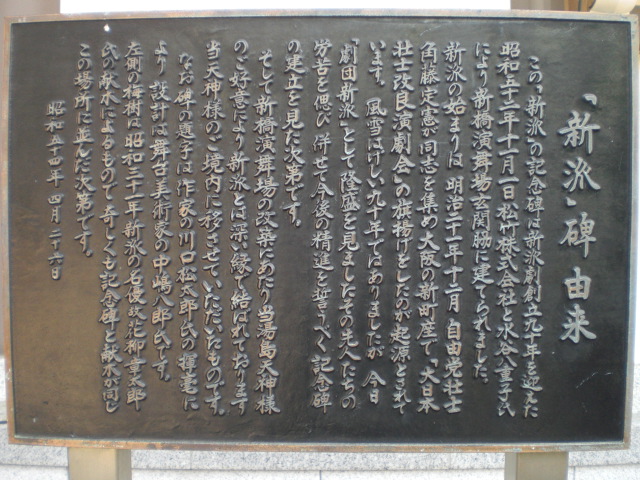 「新派」碑 由来
この、新派、の記念碑は新派劇創立九十年を迎えた
昭和五十二年十一月一日松竹株式会社と水谷八重子氏
により新橋演舞場玄関脇に建てられました。
新派の始まりは 明治二十一年十二月 自由党壮士
角藤定憲が同志を集め大阪の新町座で、大日本
壮士改良演劇会、の旗揚げをしたのが起源とされて
います。風雪はげしい九十年ではありましたが 今日
「劇団新派」として隆盛を見ましたその先人たちの
労苦を偲び 併せて今後の精進を誓うべく記念碑
の建立を見た次第です。
そして新橋演舞場の改築にあたり当湯島天神様
のご好意により新派とは深い縁で結ばれております
当天神様のご境内に移させていただいたものです。
なお 碑の題字は 作家の川口松太郎氏の揮毫に
より 設計は舞台美術家の中嶋八郎氏です。
左側の梅樹は 昭和三十一年 新派の名優故花柳章太郎
氏の献木によるもので 奇しくも記念碑と献木が同じ
この場所に並んだ次第です。
昭和五十四年 四月 二十六日